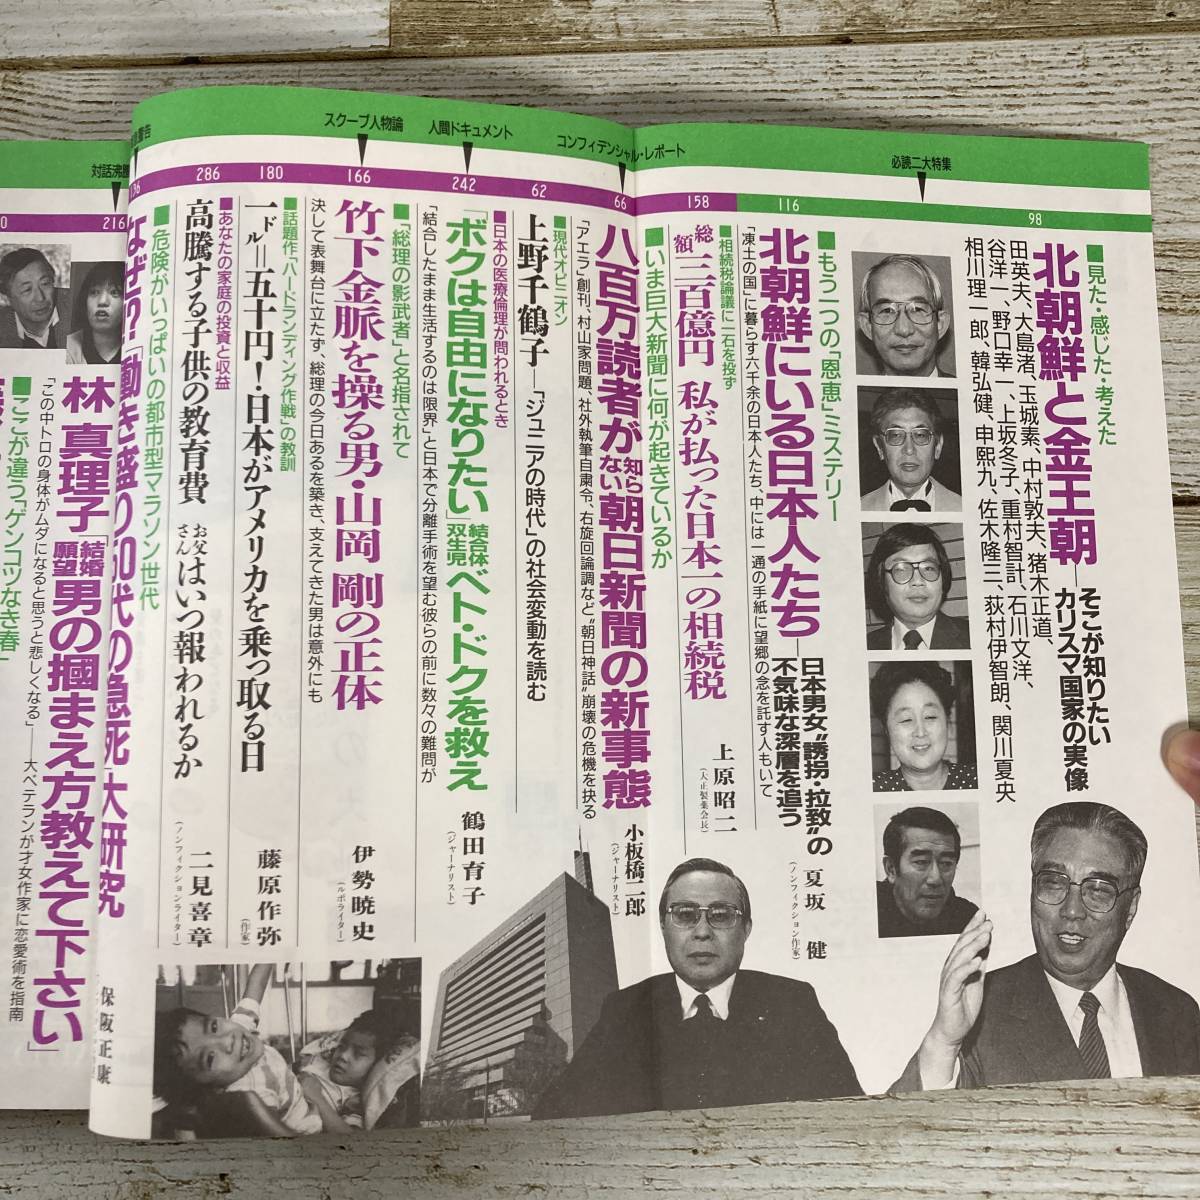 必読二大特集
98
■見た・感じた・考えた
北朝鮮と金王朝―そこが知りたい
カリスマ国家の実像
田英夫、大島渚、玉城素、中村敦夫、猪木正道、
谷洋一、野口幸一、上坂冬子、重村智計、石川文洋、
相川理一郎、韓弘健、申熙九、佐木隆三、荻村伊智朗、関川夏央
116
■もう一つの「恩恵」ミステリー
北朝鮮にいる日本人たち―日本男女“誘拐・拉致”の
不気味な深層を追う
夏坂 健
(ノンフィクション作家)
「凍土の国」に暮らす六千余の日本人たち、中には一通の手紙に望郷の念を託す人もいて
158
■相続税論議に一石を投ず
総額三百億円 私が払った日本一の相続税
上原昭二
(大正製薬会長)
コンフィデンシャル・レポート
66
■いま巨大新聞に何が起きているか
八百万読者が知らない朝日新聞の新事態
小板橋二郎
(ジャーナリスト)
「アエラ」創刊、村山家問題、社外執筆自粛令、右旋回論調など“朝日神話”崩壊の危機を抉る
62
■現代オピニオン
上野千鶴子―「ジュニアの時代」の社会変動を読む
人間ドキュメント
242
■日本の医療倫理が問われるとき
「ボクは自由になりたい」結合体双生児ベト・ドクを救え
鶴田育子
(ジャーナリスト)
「結合したまま生活するのは限界」と日本で分離手術を望む彼らの前に数々の難問が
スクープ人物論
166
■「総理の影武者」と名指されて
竹下金脈を操る男・山岡 剛の正体
伊勢暁史
(ルポライター)
決して表舞台に立たず、総理の今日あるを築き、支えてきた男は意外にも
180
■話題作「ハードランディング作戦」の教訓
一ドル=五十円!・日本がアメリカを乗っ取る日
藤原作弥
(作家)
286
■あなたの家庭の投資と収益
高騰する子供の教育費 お父さんはいつ報われるか
二見喜章
(ノンフィクションライター)
警告
136
■危険がいっぱいの都市型マラソン世代
なぜ!?働き盛り50代の「急死」大研究
保阪正康
対話沸騰
216
林 真理子「結婚願望男の摑まえ方教えて下さい」
「この中トロの身体がムダになると思うと悲しくなる」――大ベテランが才女作家に恋愛術を指南
0
■ここが違う“ゲンコツなき春”